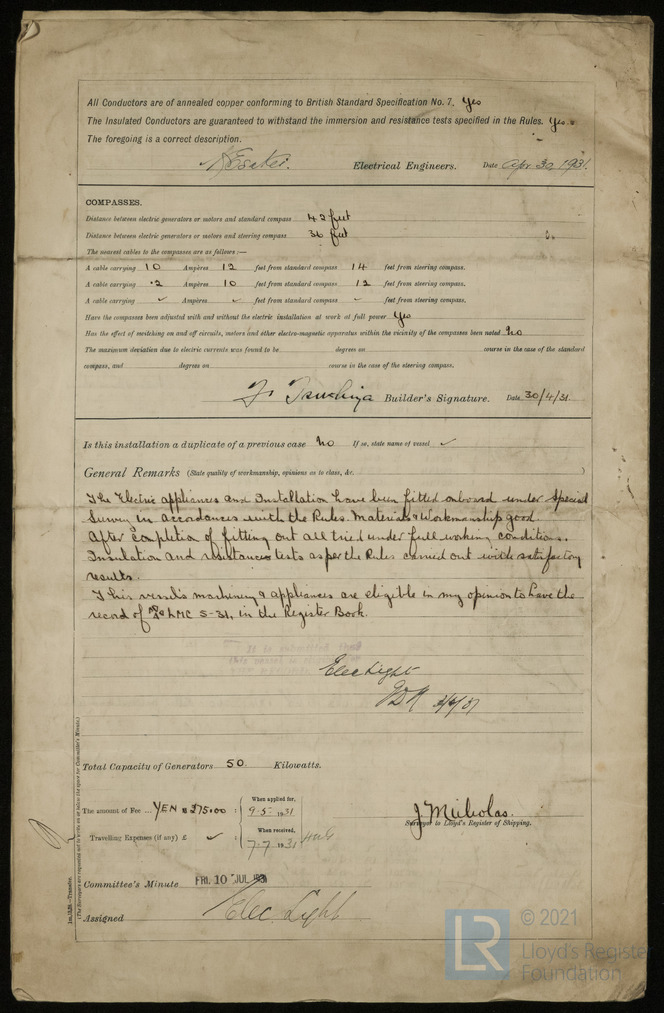 All Conductors are of annealed copper conforming to British Standard Specification No. 7. Yes
The Insulated Conductors are guaranteed to withstand the immersion and resistance tests specified in the Rules. Yes.
The foregoing is a correct description.
Electrical Engineers. Date Apr 30, 1931.
COMPASSES.
Distance between electric generators or motors and standard compass 42 feet
Distance between electric generators or motors and steering compass 36 feet
The nearest cables to the compasses are as follows:—
A cable carrying 10 Ampères 12 feet from standard compass 14 feet from steering compass.
A cable carrying .2 Ampères 10 feet from standard compass 12 feet from steering compass.
A cable carrying ✓ Ampères ✓ feet from standard compass ✓ feet from steering compass.
Have the compasses been adjusted with and without the electric installation at work at full power Yes
Has the effect of switching on and off circuits, motors and other electro-magnetic apparatus within the vicinity of the compasses been noted No
The maximum deviation due to electric currents was found to be degrees on course in the case of the standard
compass, and degrees on course in the case of the steering compass.
Tsuchiya Builder's Signature. Date 30/4/31
Is this installation a duplicate of a previous case No If so, state name of vessel ✓
General Remarks (State quality of workmanship, opinions as to class, &c.)
The Electric appliances and Installation have been fitted onboard under Special
Survey in accordances with the Rules. Materials & Workmanship good.
After completion of fitting out all tried under full working conditions.
Insulation and resistances tests as per the Rules carried out with satisfactory
results.
This vessel's machinery & appliances are eligible in my opinion to have the
record of LMC 5-31, in the Register Book.
Elec Light
Total Capacity of Generators 50 Kilowatts.
The amount of Fee ... YEN 375.00 When applied for, 9-5-1931
Travelling Expenses (if any) £ ✓ When received, 7.7.1931
J. Nicholas.
Surveyor to Lloyd's Register of Shipping.
Committee's Minute FRI. 10 JUL 1931
Assigned Elec. Light
(The Surveyors are requested not to write on or below the space for Committee's Minute.)
© 2021
LR
Lloyd's Register
Foundation